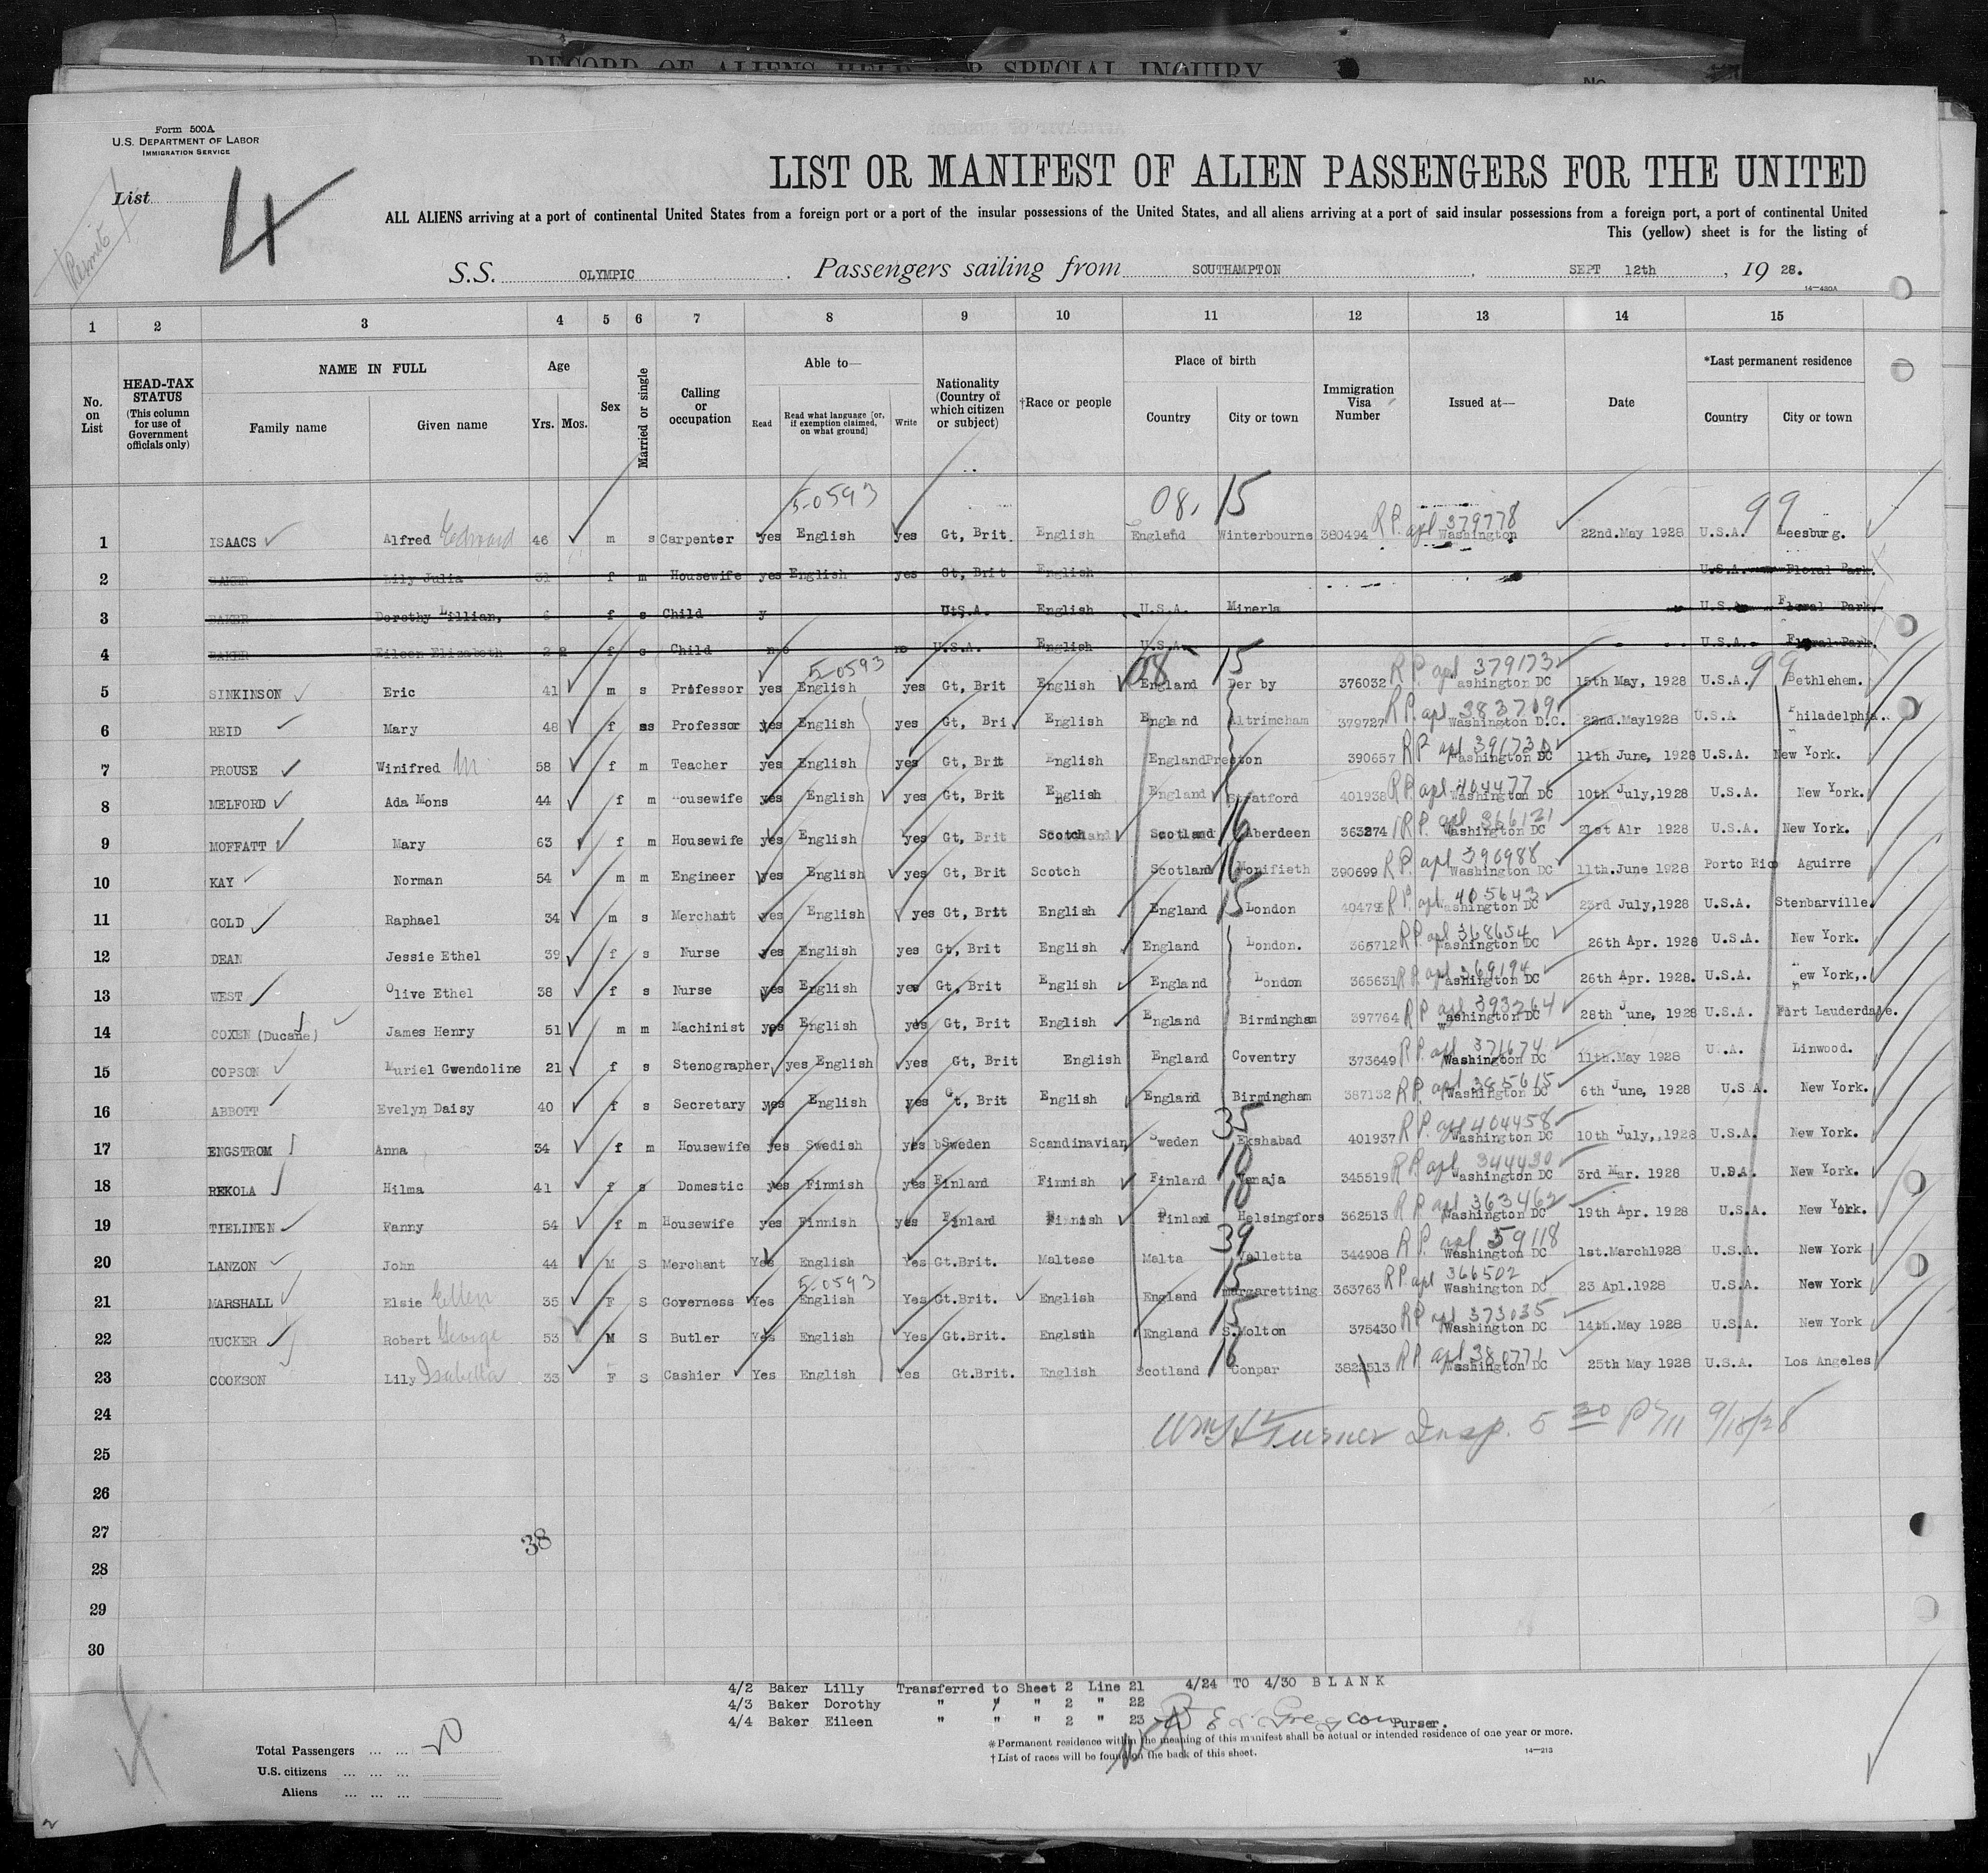 RECORD OF ALIENS HELD FOR SPECIAL INQUIRY
No.
Form 500A
U.S. DEPARTMENT OF LABOR
IMMIGRATION SERVICE
List 4
LIST OR MANIFEST OF ALIEN PASSENGERS FOR THE UNITED
ALL ALIENS arriving at a port of continental United States from a foreign port or a port of the insular possessions of the United States, and all aliens arriving at a port of said insular possessions from a foreign port, a port of continental United
This (yellow) sheet is for the listing of
S.S. OLYMPIC. Passengers sailing from SOUTHAMPTON, SEPT 12th, 19 28.
14—480A
1 2 3 4 5 6 7 8 9 10 11 12 13 14 15
No. on List
HEAD-TAX STATUS (This column for use of Government officials only)
NAME IN FULL Family name Given name
Age Yrs. Mos.
Sex
Married or single
Calling or occupation
Able to— Read Read what language [or, if exemption claimed, on what ground] Write
Nationality (Country of which citizen or subject)
†Race or people
Place of birth Country City or town
Immigration Visa Number
Issued at—
Date
*Last permanent residence Country City or town
5-0593 08, 15 99
1 ISAACS Alfred Edward 46 m s Carpenter yes English yes Gt, Brit. English England Winterbourne 380494 R.P. apl 379778 Washington 22nd.May 1928 U.S.A. Leesburg.
2 BAKER Lily Julia 31 f m Housewife yes English yes Gt, Brit English U.S.A. Floral Park.
3 BAKER Dorothy Lillian, 6 f s Child y U.S.A. English U.S.A. Minerla U.S.A. Floral Park.
4 BAKER Eileen Elizabeth 2 f s Child no no U.S.A. English U.S.A. U.S.A. Floral Park.
5-0593 08 15 99
5 SINKINSON Eric 41 m s Professor yes English yes Gt, Brit English England Der by 376032 R.P. apl 379173 ashington DC 15th May, 1928 U.S.A. Bethlehem.
6 REID Mary 48 f s Professor yes English yes Gt, Bri English England Altrimcham 379727 R.P. apl 383709 Washington D.C. 22nd.May1928 U.S.A Philadelphia.
7 PROUSE Winifred M 58 f m Teacher yes English yes Gt, Brit English England Preston 390657 R.P. apl 396730 Washington DC 11th June, 1928 U.S.A. New York.
8 MELFORD Ada Mons 44 f m ousewife yes English yes Gt, Brit English England Stratford 401938 R.P. apl 404477 Washington DC 10th July,1928 U.S.A. New York.
9 MOFFATT Mary 63 f m Housewife yes English yes Gt, Brit Scotch Scotland 16 Aberdeen 363274 R.P. apl 366121 Washington DC 21st Alr 1928 U.S.A. New York.
10 KAY Norman 54 m m Engineer yes English yes Gt, Brit Scotch Scotland 16 Monifieth 390699 R.P. apl 390988 Washington DC 11th.June 1928 Porto Rico Aguirre
11 GOLD Raphael 34 m s Merchant yes English yes Gt, Brit English England 15 London R.P. apl 405643 Washington DC 23rd July,1928 U.S.A. Stenbarville.
12 DEAN Jessie Ethel 39 f s Nurse yes English yes Gt, Brit English England London. 365712 R.P. apl 368654 Washington DC 26th Apr. 1928 U.S.A. New York.
13 WEST Olive Ethel 38 f s Nurse yes English yes Gt, Brit English England London 365631 R.P. apl 369194 Washington DC 26th Apr. 1928. U.S.A. ew York,.
14 COXEN (Ducane) James Henry 51 m m Machinist yes English yes Gt, Brit English England Birmingham 397764 R.P. apl 393264 Washington DC 28th June, 1928 U.S.A. Fort Lauderdale.
15 COPSON Muriel Gwendoline 21 f s Stenographer yes English yes Gt, Brit English England Coventry 373649 R.P. apl 371674 Washington DC 11th.May 1928 U. .A. Linwood.
16 ABBOTT Evelyn Daisy 40 f s Secretary yes English yes Gt, Brit English England Birmingham 387132 R.P. apl 385615 Washington DC 6th June, 1928 U.S.A. New York.
17 ENGSTROM Anna 34 f m Housewife yes Swedish yes Sweden Scandinavian Sweden 35 Ekshabad 401937 R.P. apl 404458 Washington DC 10th July,,1928 U.S.A. New York.
18 REKOLA Hilma 41 f s Domestic yes Finnish yes Finland Finnish Finland 18 345519 R.P. apl 344430 Washington DC 3rd Mar. 1928 U.S.A. New York.
19 TIELINEN Fanny 54 f m Housewife yes Finnish yes Finland Finnish Finland 18 Helsingfors 362513 R.P. apl 363462 Washington DC 19th Apr. 1928 U.S.A. New York.
20 LANZON John 44 M S Merchant Yes English Yes Gt.Brit. Maltese Malta 39 Valletta 344908 R.P. apl 59118 Washington DC 1st.March1928 U.S.A. New York
5-0593
21 MARSHALL Elsie Ellen 35 F S Governess Yes English Yes Gt.Brit. English England 15 Margaretting 363763 R.P. apl 366502 Washington DC 23 Apl.1928 U.S.A. New York
22 TUCKER Robert George 53 M S Butler Yes English Yes Gt.Brit. English England 15 S.Molton 375430 R.P. apl 373035 Washington DC 14th.May 1928 U.S.A. New York
23 COOKSON Lily Isabella 33 F S Cashier Yes English Yes Gt.Brit. English Scotland 16 Conpar 382513 R.P. apl 380771 Washington DC 25th May 1928 U.S.A. Los Angeles
24
Wm H Turner Insp. 5 30 PM 9/18/28
25
26
27
38
28
29
30
4/2 Baker Lilly Transferred to Sheet 2 Line 21 4/24 TO 4/30 BLANK
4/3 Baker Dorothy " " " 2 " 22
4/4 Baker Eileen " " " 2 " 23
Purser.
*Permanent residence within the meaning of this manifest shall be actual or intended residence of one year or more.
†List of races will be found on the back of this sheet.
14—213
Total Passengers ... ... 20
U.S. citizens ... ... ...
Aliens ... ... ...